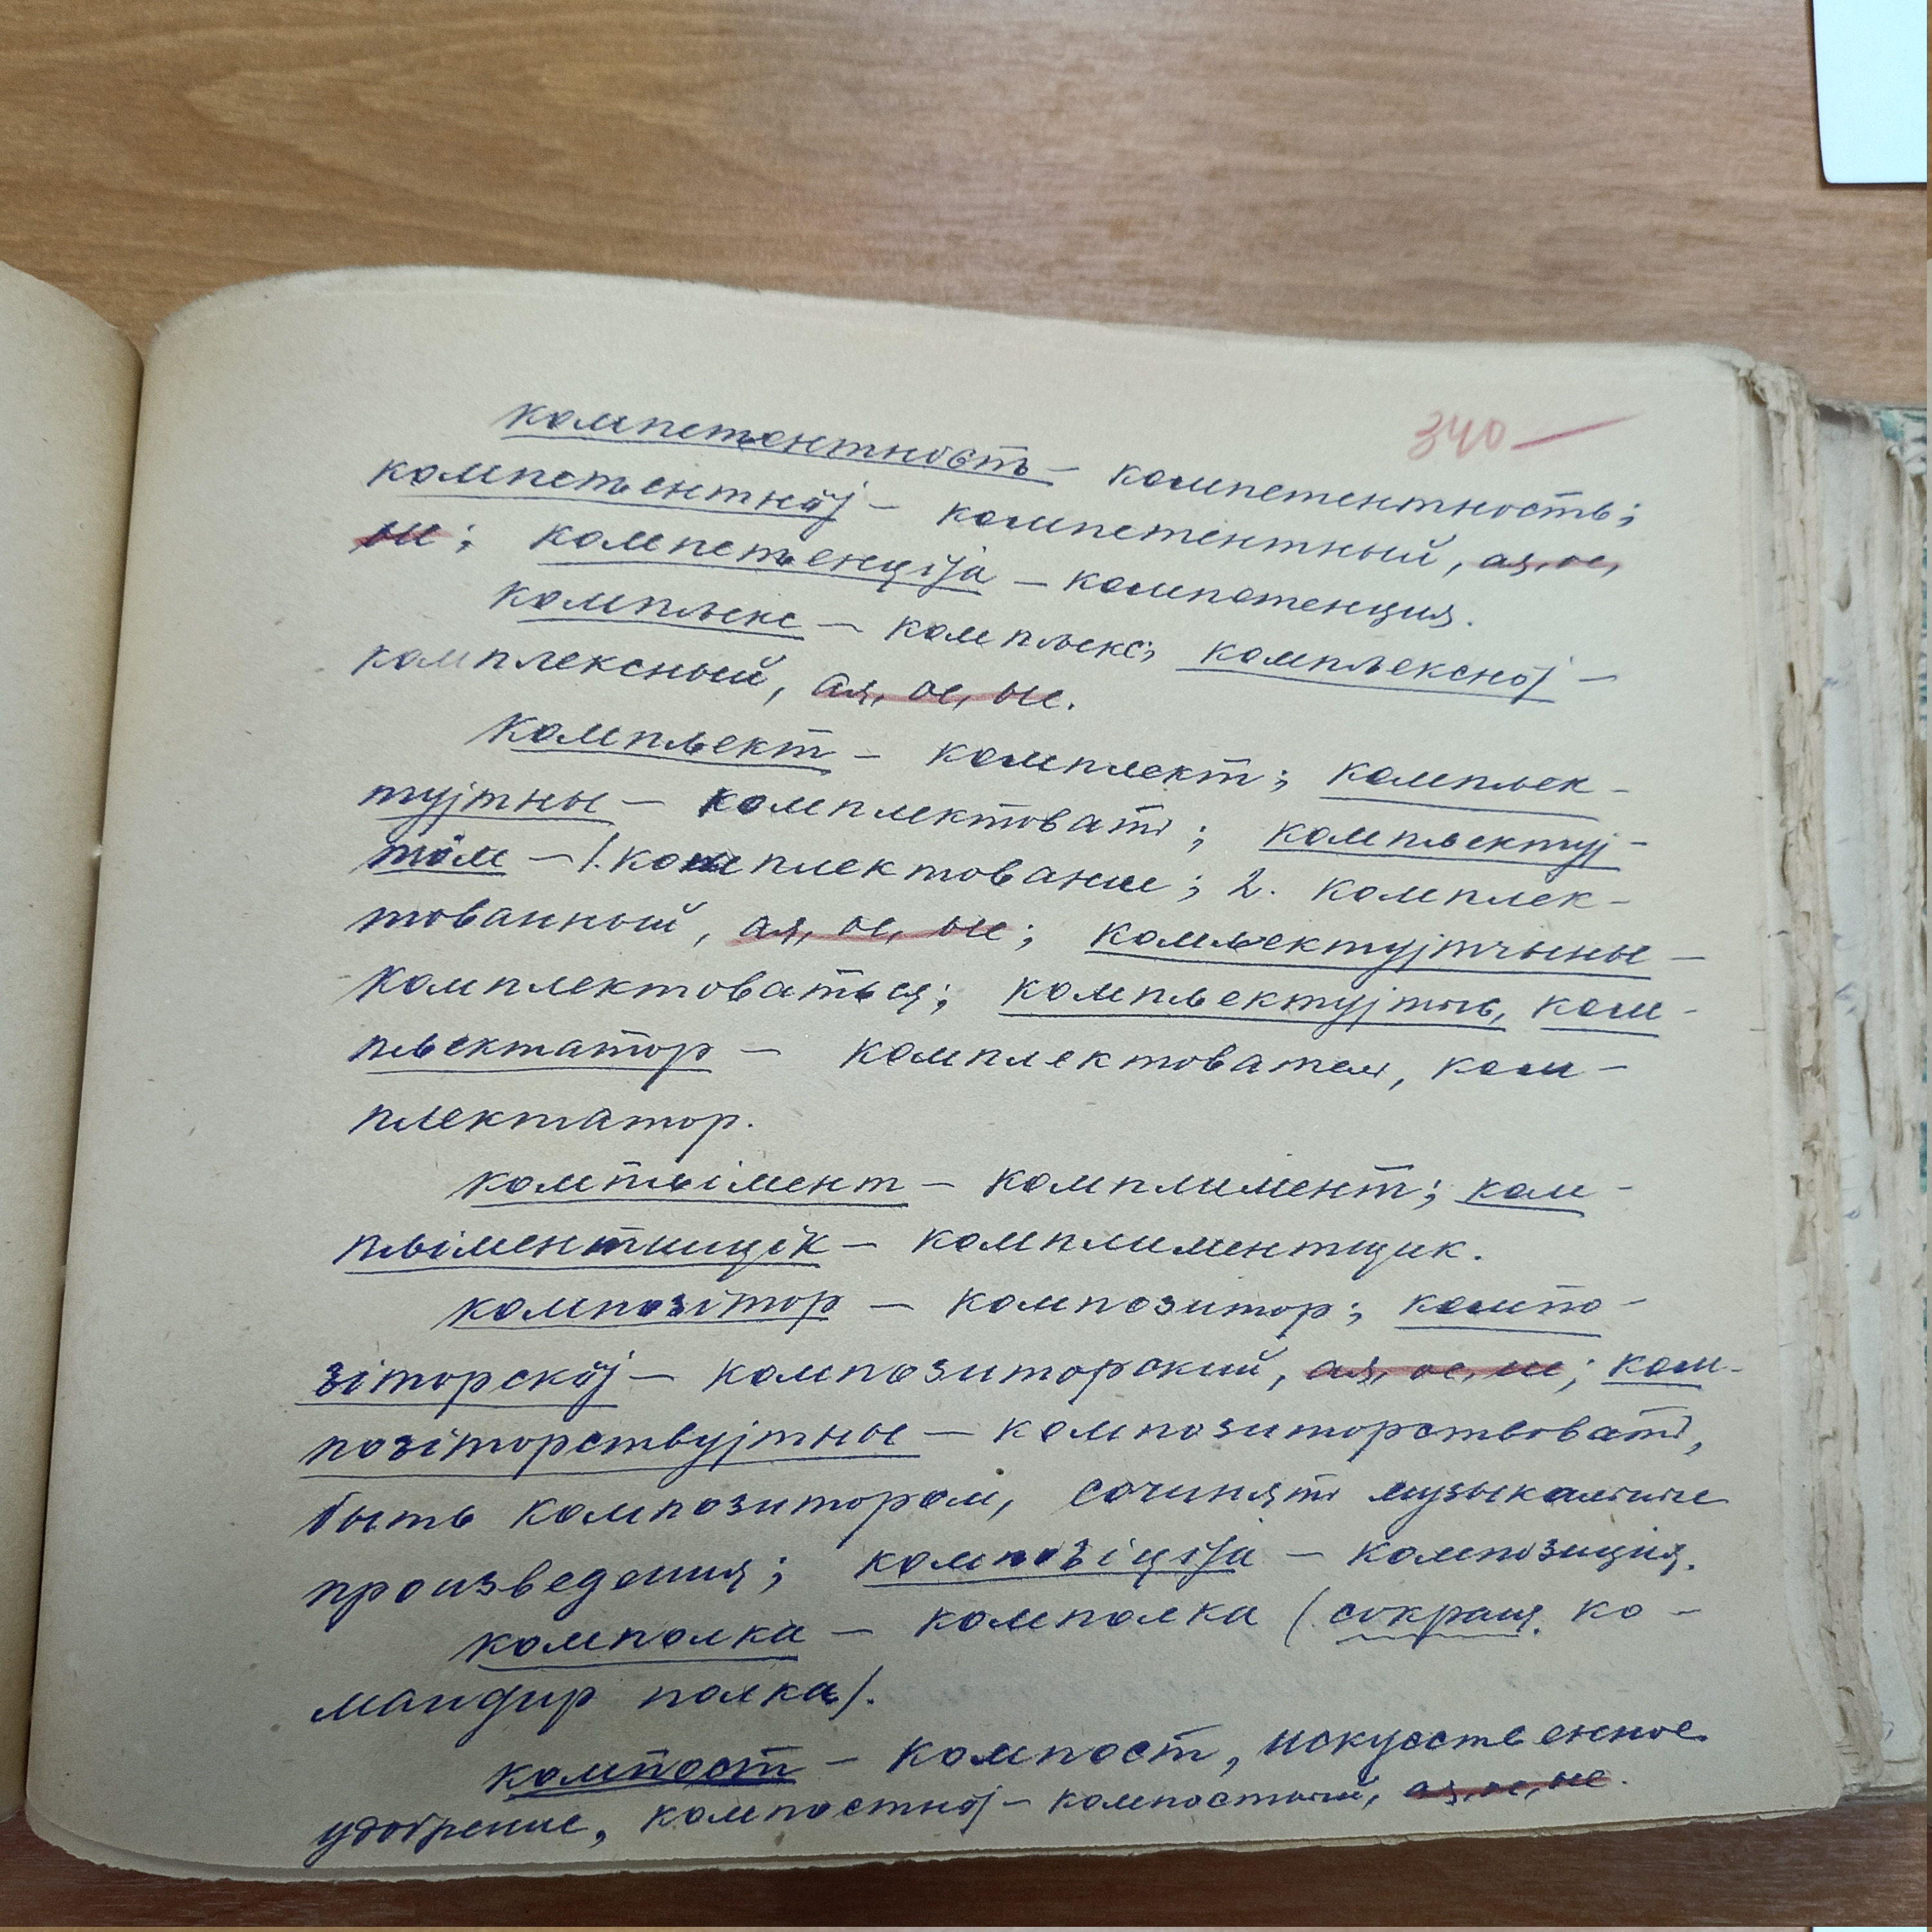 340
компетьентность — компетентность;
компетьентнӧj — компетентный, ая, ое,
ые; компетьенціја — компетенция.
компльекс — компльекс; компльекснӧj —
комплексный, ая, ое, ые.
компльект — комплект; компльек-
туjтны — комплектовать; компльектуj-
тӧм — 1. комплектование; 2. комплек-
тованный, ая, ое, ые; комльектуjтчыны —
комплектоваться; компльектуjтысь, ком-
пльектатор — комплектователь, ком-
плектатор.
компльімент — комплимент; ком-
пльіментшщік — комплиментщик.
композітор — композитор; компо-
зіторскӧj — композиторский, ая, ое, ие; ком-
позіторствуjтны — композиторствовать,
быть композитором, сочинять музыкальные
произведения; композіціја — композиция.
комполка — комполка (сокращ. ко-
мандир полка).
компост — компост, искусственное
удобрение, компостнӧj — компостный, ая, ое, ые.